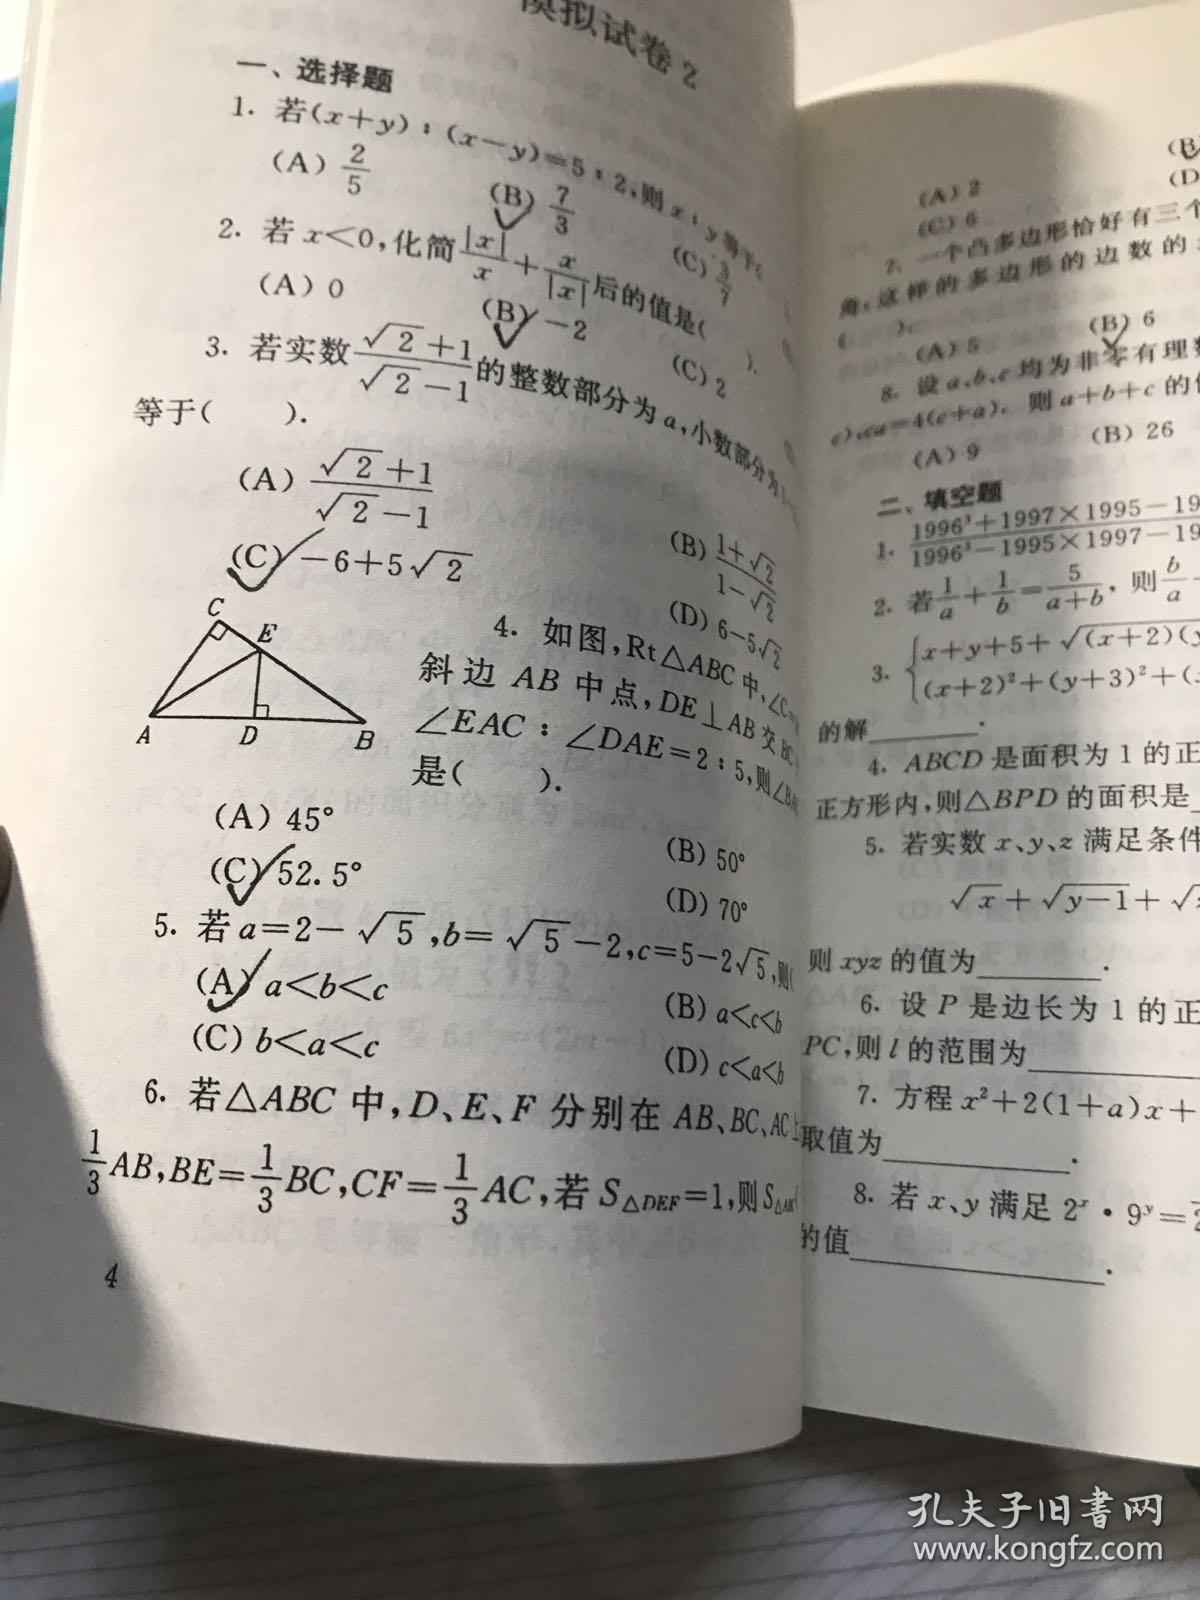 模拟试卷2
一、选择题
1. 若(x+y)：(x−y)=5：2,则 x：y 等于(
(A) 2/5 (B) 7/3 (C) 3/7
2. 若 x<0,化简 |x|/x + x/|x| 后的值是( ).
(A) 0 (B) −2 (C) 2
3. 若实数 (√2+1)/(√2−1) 的整数部分为 a,小数部分为
等于( ).
(A) (√2+1)/(√2−1) (B) (1+√2)/(1−√2)
(C) −6+5√2 (D) 6−5√2
C
E
A D B
4. 如图,Rt△ABC 中,∠C=
斜边 AB 中点,DE⊥AB 交 BC
∠EAC：∠DAE=2：5,则∠BA
是( ).
(A) 45° (B) 50°
(C) 52.5° (D) 70°
5. 若 a=2−√5,b=√5−2,c=5−2√5,则(
(A) a<b<c (B) a<c<b
(C) b<a<c (D) c<a<b
6. 若△ABC 中,D、E、F 分别在 AB、BC、AC上
1/3 AB,BE=1/3 BC,CF=1/3 AC,若 S△DEF=1,则 S△ABC
4
(B)
(A) 2 (D
(C) 6
7. 一个凸多边形恰好有三个
角,这样的多边形的边数的
( ).
(A) 5 (B) 6
8. 设 a、b、c 均为非零有理数
c),ca=4(c+a). 则 a+b+c 的
(A) 9 (B) 26
二、填空题
1. 1996³+1997×1995−19
1996³−1995×1997−19
2. 若 1/a + 1/b = 5/(a+b), 则 b/a
3. { x+y+5+√(x+2)(y
(x+2)²+(y+3)²+(
的解 .
4. ABCD 是面积为 1 的正
正方形内,则△BPD 的面积是
5. 若实数 x、y、z 满足条件
√x+√y−1+√
则 xyz 的值为 .
6. 设 P 是边长为 1 的正
PC,则 l 的范围为
7. 方程 x²+2(1+a)x+
取值为 .
8. 若 x、y 满足 2ˣ·9ʸ=2
的值 .
孔夫子旧书网
www.kongfz.com